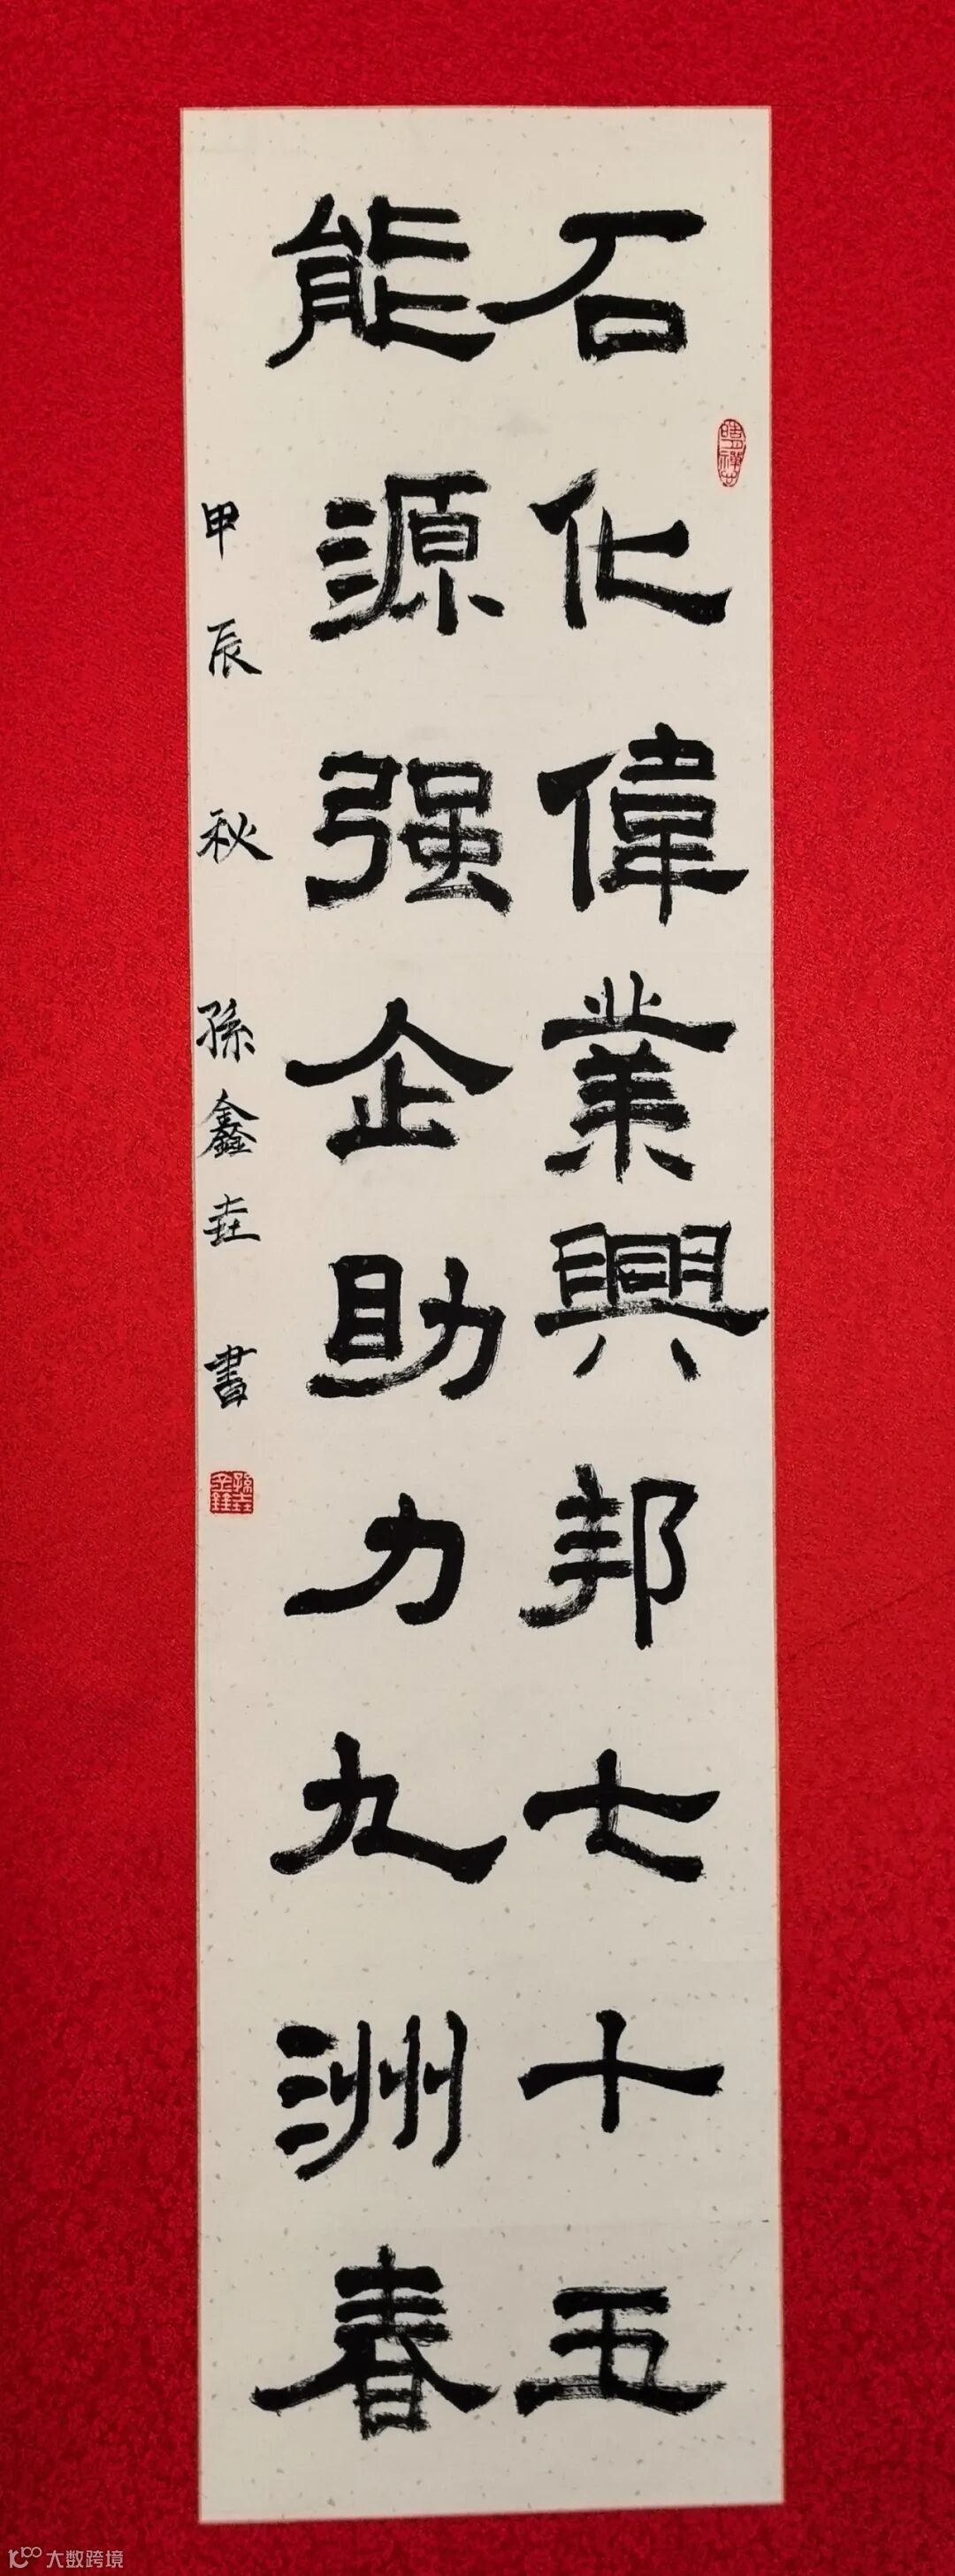 石化偉業興邦七十五
能源强企助力九洲春
甲辰秋孫鑫垚書
大数跨境